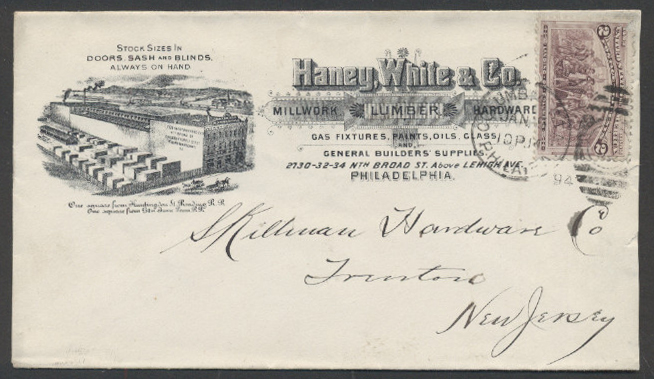 STOCK SIZES IN
DOORS, SASH AND BLINDS,
ALWAYS ON HAND.
Haney, White & Co.
MILLWORK LUMBER HARDWARE
GAS FIXTURES, PAINTS, OILS, GLASS
AND
GENERAL BUILDERS' SUPPLIES,
2730-32-34 NTH BROAD ST. Above LEHIGH AVE.
PHILADELPHIA.
One square from Huntingdon St. Reading R.R.
One square from
Skillman Hardware Co
Trenton
New Jersey
JAN
94
2 2